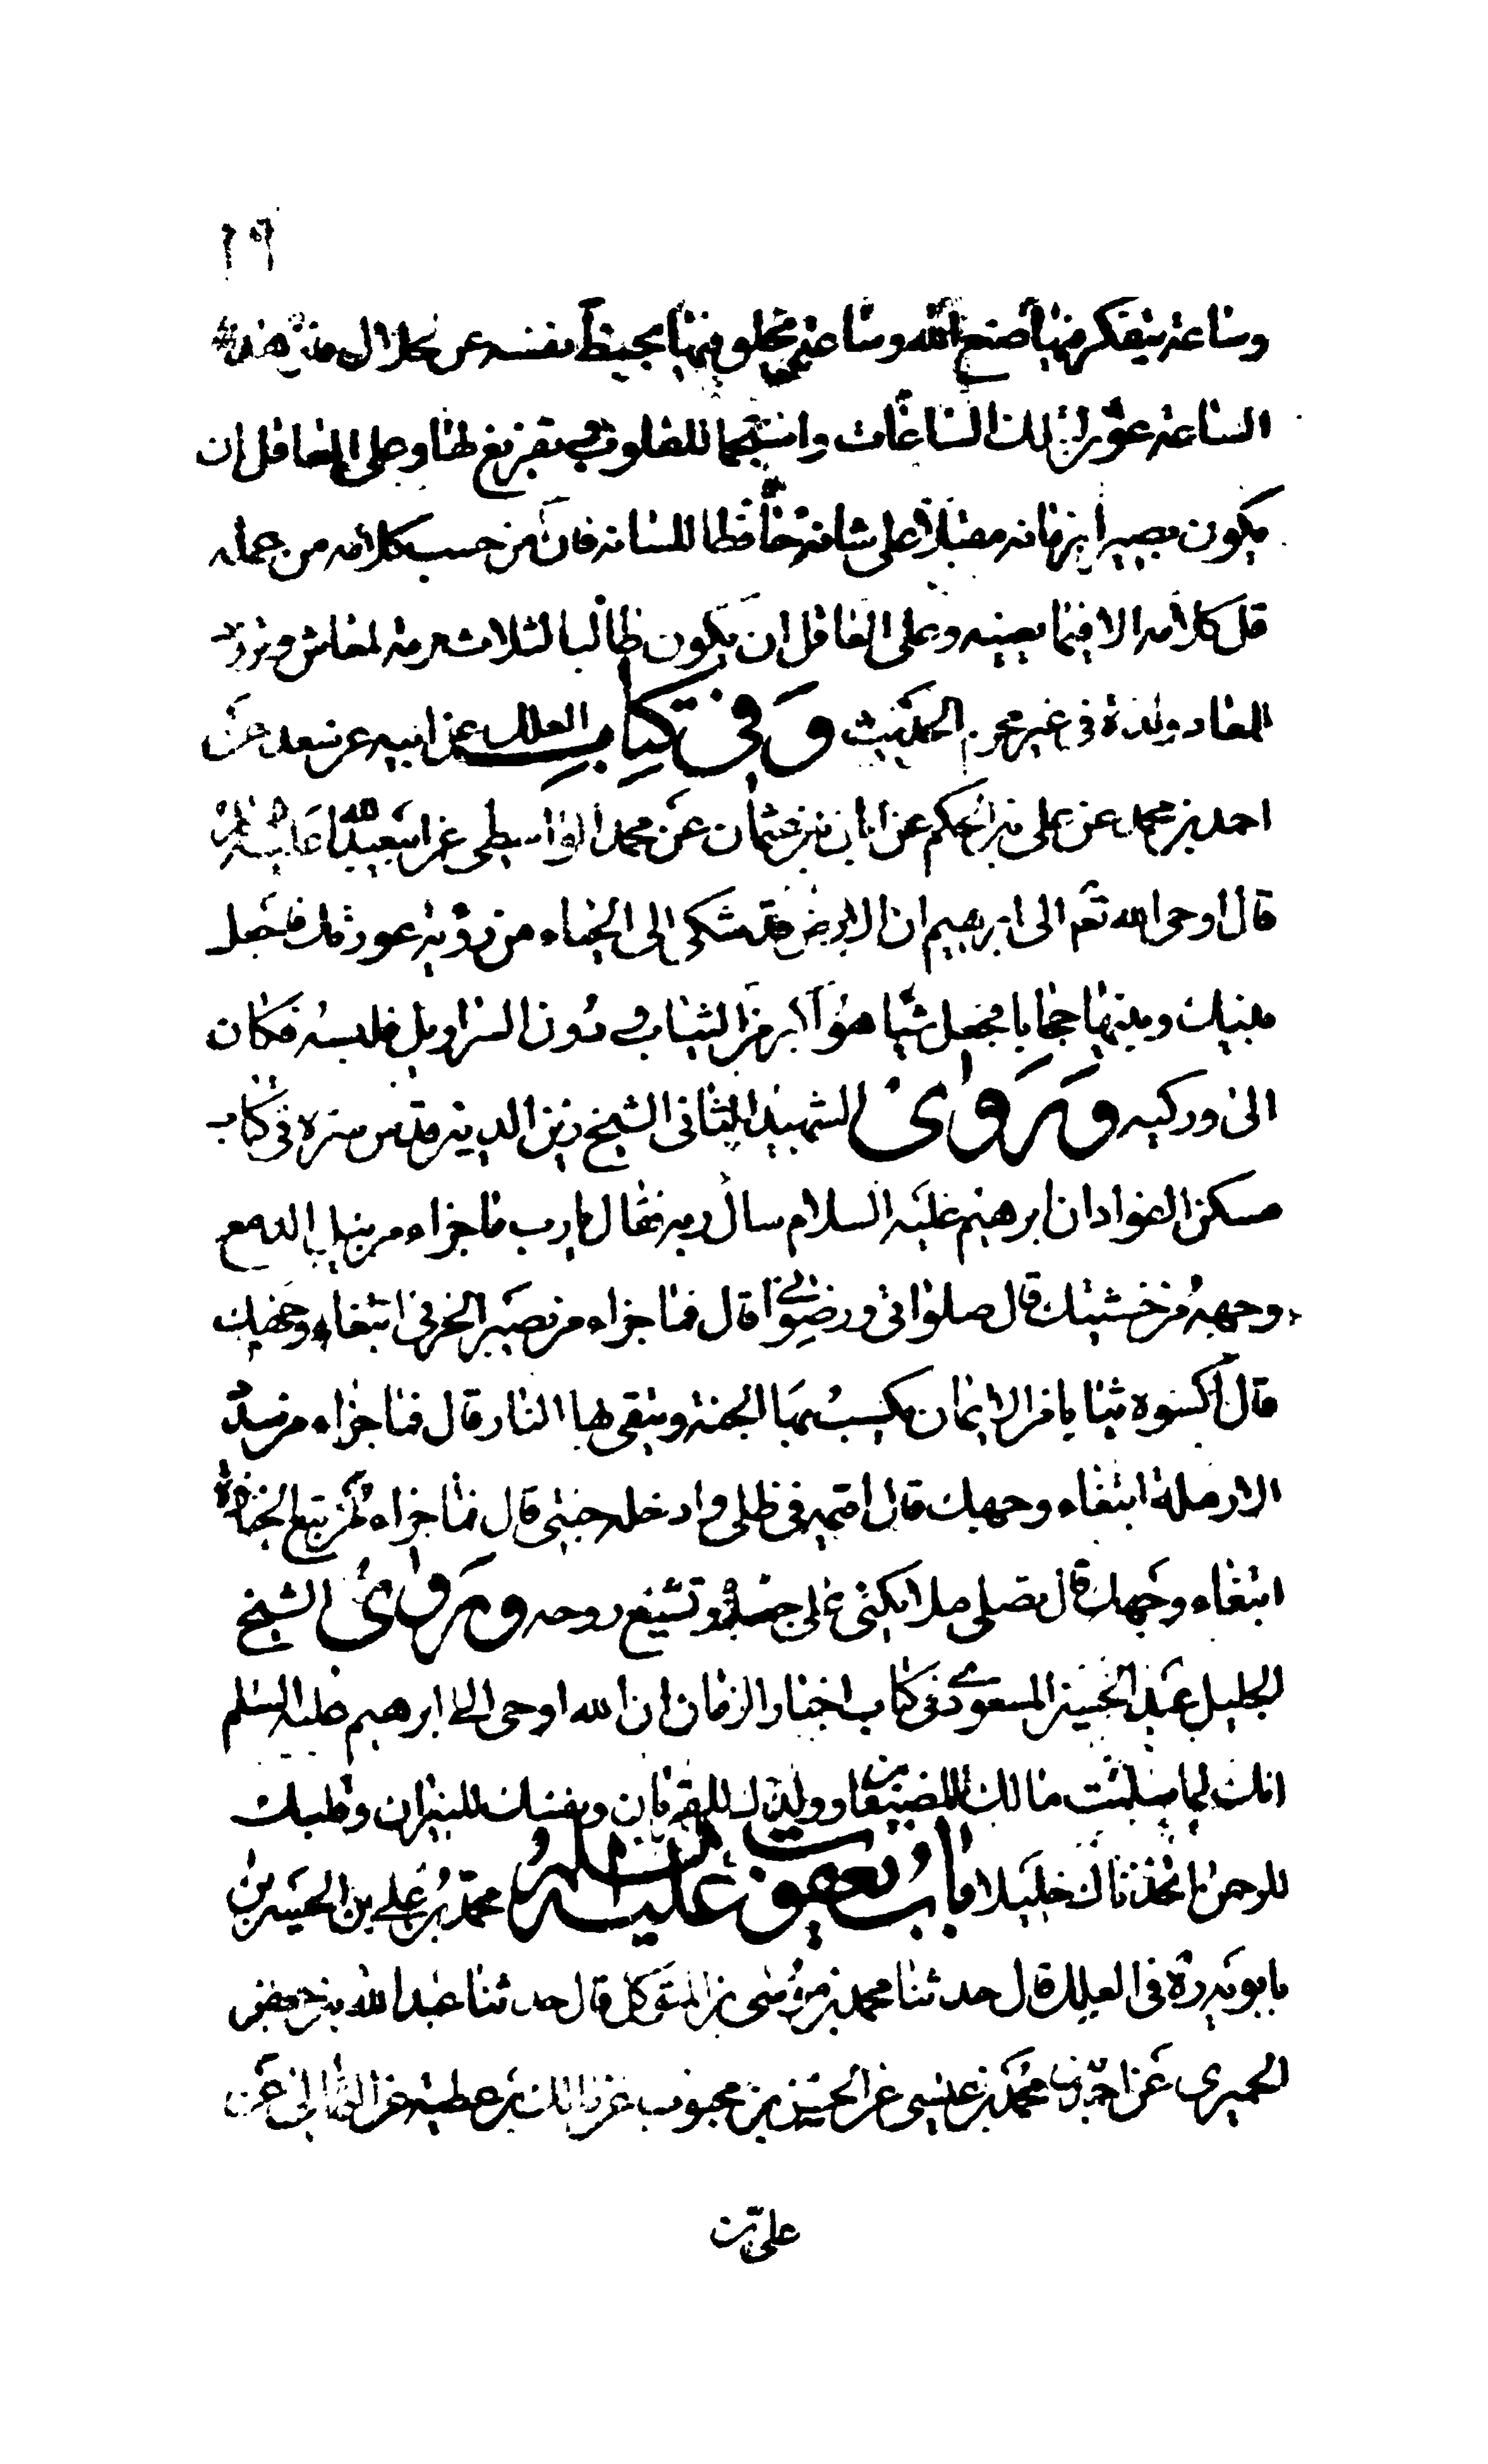 ١٩
وساعة يتفكر فيها صنع الله وساعة يخلو فيها بحظ نفسه عن الحلال فان هذه
الساعة عون لتلك الساعات واستجماما للقلوب وتفريغ لها وعلى العاقل ان
يكون بصيرا بزمانه مقبلا على شانه حافظا للسانه فان من حسب كلامه من عمله
قل كلامه الا فيما يعنيه وعلى العاقل ان يكون طالبا لثلاث مرمة لمعاش وتزود
لمعاد ولذة في غير محرم الحديث وفي كتاب العلل عن ابيه عن سعد عن
احمد بن محمد عن علي بن الحكم عن ابان بن عثمان عن محمد الواسطي عن ابيعبد الله عليه السلم
قال اوحى الله تعم الى ابرهيم ان الارض قد شكى الى الحياء من رؤية عورتك فاجعل
بينك وبينها حجابا فجعل شيئا هو اكبر من الثياب ومن دون السراويل فلبسه فكان
الى وركيه وروى الشهيد الثاني الشيخ زين الدين قدس سره في كتاب
مسكن الفواد ان ابرهيم عليه السلام سال ربه فقال يا رب ما جزاء من يبل الدمع
وجهه من خشيتك قال صلواتي ورضواني قال فما جزاء من يصبر الحزين ابتغاء وجهك
قال اكسوه ثيابا من الايمان يكسب بها الجنة ويتقي بها النار قال فما جزاء من سدد
الارملة ابتغاء وجهك قال اقيمه في ظلي وادخله جنتي قال فما جزاء من تبع الجنازة
ابتغاء وجهك قال تصلي ملائكتي على جسده وتشيع روحه وروى الشيخ
الجليل عبد الحسين المسعودي في كتاب اخبار الزمان ان الله اوحى الى ابرهيم عليه السلم
انك لما سلمت مالك للضيفان وولدك للقربان ونفسك للنيران وقلبك
للرحمن اتخذناك خليلا باب يعقوب عليه السلم محمد بن علي بن الحسين بن
بابويه ره في العلل قال حدثنا محمد بن موسى بن المتوكل قال حدثنا عبد الله بن جعفر
الحميري عن احمد بن محمد بن عيسى عن الحسن بن محبوب عن مالك بن عطية عن الثمالي عن
علي بن